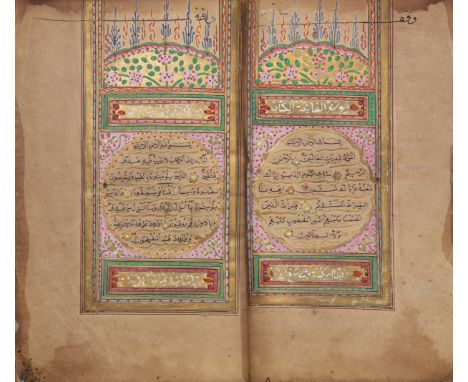 وقف
سورة الفاتحة الكتاب
بسم الله الرحمن الرحيم
الحمد لله رب العالمين الرحمن
الرحيم مالك يوم الدين اياك
نعبد واياك نستعين اهدنا
الصراط المستقيم صراط الذين
انعمت عليهم غير المغضوب عليهم
ولا الضالين
وقف
سورة البقرة
بسم الله الرحمن الرحيم
الم ذلك الكتاب لا ريب فيه هدى
للمتقين الذين يؤمنون بالغيب ويقيمون
الصلوة ومما رزقناهم ينفقون والذين
يؤمنون بما انزل اليك وما انزل من قبلك
وبالاخرة هم يوقنون اولئك على هدى من ربهم
واولئك هم المفلحون